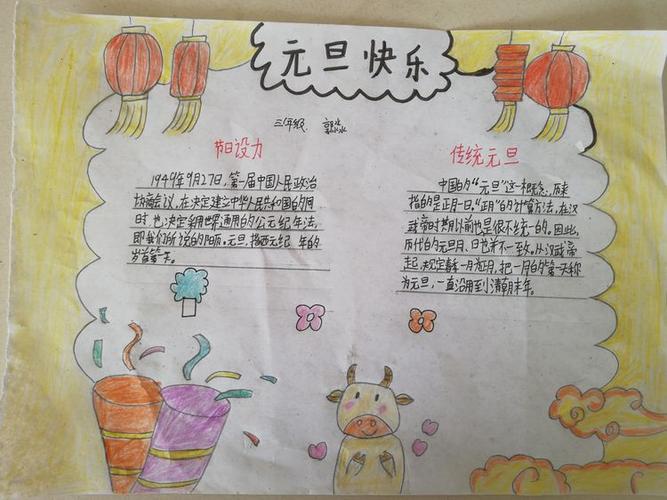 元旦快乐
三年级 郭焱焱
节日设力
1949年9月27日,第一届中国人民政治
协商会议,在决定建立中华人民共和国的同
时也决定采用世界通用的公元纪年法,
即我们所说的阳历。元旦,指西元纪年的
岁首第一天。
传统元旦
中国的“元旦”这一概念,历来
指的是正月一日。“正月”的计算方法,在汉
武帝时期以前也是很不统一的。因此,
历代的元旦月、日也并不一致。从汉武帝
起,规定春一月为正月,把一月的第一天称
为元旦,一直沿用到清朝末年。